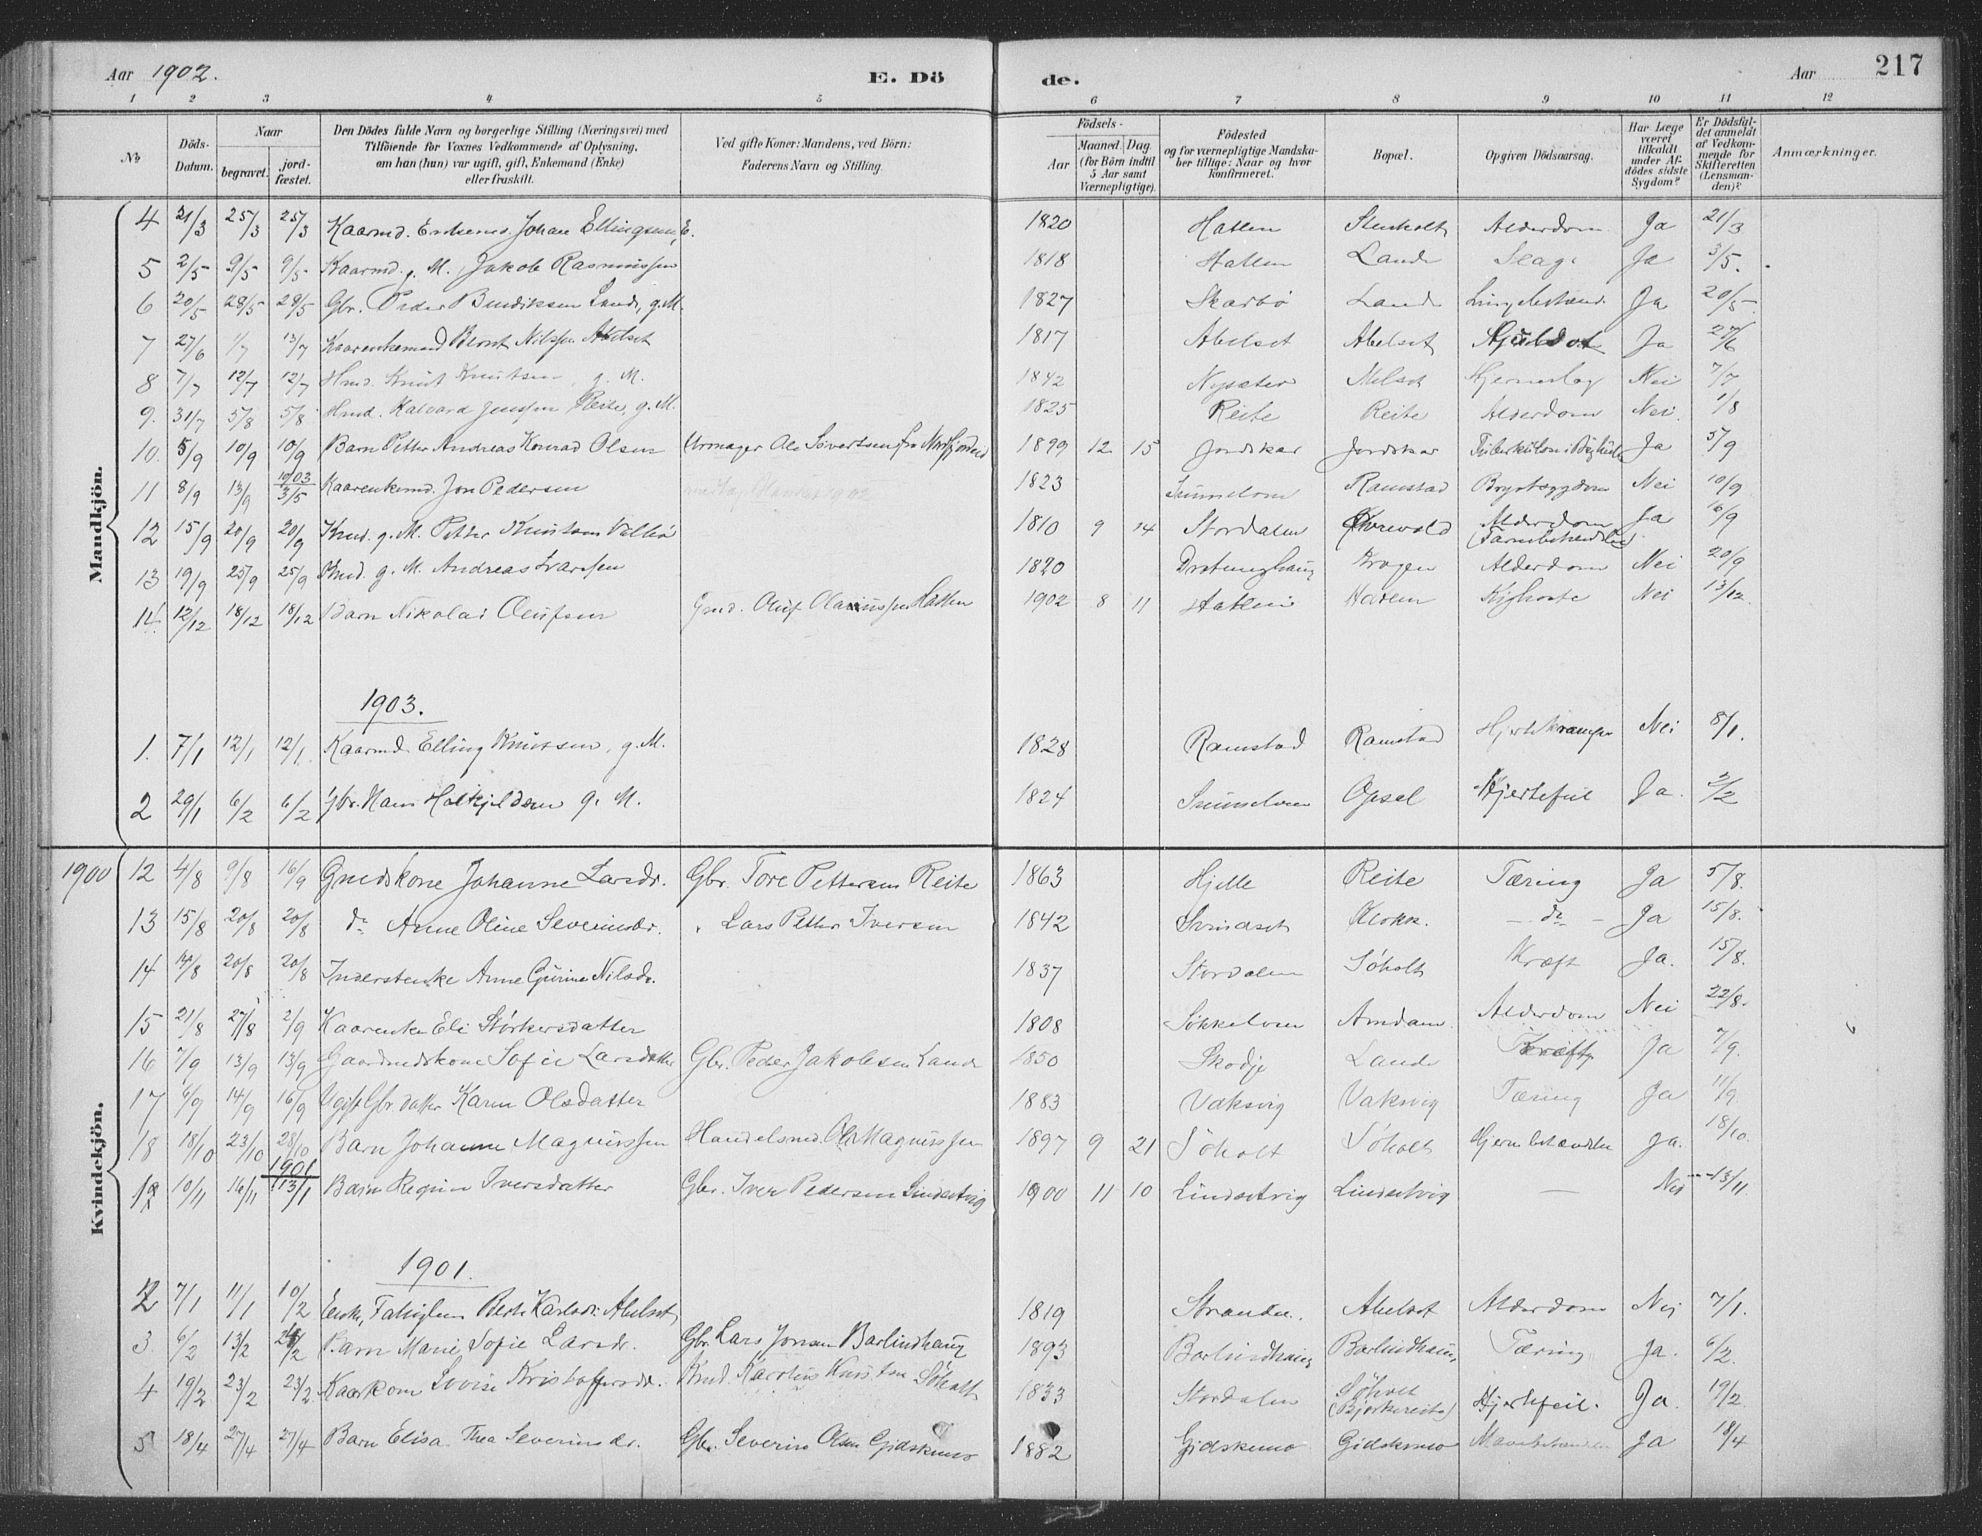 Aar 1902. E. Dö de. Aar 217
1 2 3 4 5 6 7 8 9 10 11 12
No Döds-Datum. Naar begravet. jord-fæstet. Den Dödes fulde Navn og borgerlige Stilling (Næringsvei) med Tilföiende for Voxnes Vedkommende af Oplysning, om han (hun) var ugift, gift, Enkemand (Enke) eller fraskilt. Ved gifte Koner: Mandens, ved Börn: Faderens Navn og Stilling. Födsels- Aar Maaned. Dag. (for Börn indtil 5 Aar samt Værnepligtige). Födested og for værnepligtige Mandskaber tillige: Naar og hvor konfirmeret. Bopæl. Opgiven Dödsaarsag. Har Læge været tilkaldt under Afdödes sidste Sygdom? Er Dödsfaldet anmeldt af Vedkommende for Skifteretten (Lensmanden)? Anmærkninger.
Mandkjön.
4 21/3 25/3 25/3 Kaarmd. Enkemd. Johan Ellingsen, E. 1820 Hatlen Stenholt Alderdom Ja 21/3
5 2/5 9/5 9/5 Kaarmd. g. M. Jakob Rasmussen 1818 Hatlen Lande Slag Ja 3/5.
6 20/5 28/5 28/5 Gbr. Peder Bendiksen Lande, g. M. 1827 Skarbö Lande Lungebetænd. Ja 20/5
7 27/6 1/7 13/7 Kaarenkemand Bernt Nilssen Abelset 1817 Abelset Abelset Ja 27/6
8 7/7 12/7 12/7 Hmd. Knut Knutsen, g. M. 1842 Nysæter Melset Hjerneslag Nei 7/7
9. 31/7 5/8 5/8 Hmd. Halvard Jenssen Reite, g. M. 1825 Reite Reite Alderdom Nei. 1/8
10. 5/9 10/9 10/9 Barn Petter Andreas Konrad Olsen Urmager Ole Sivertsen fra Nordfjordeid 1899 12 15 Jordskar Jordskar Ja 5/9
11 8/9 13/9 1903 3/5 Kaarenkemd. Jon Pedersen 1823 Sunnelven Ramstad Brystsygdom Nei 10/9
12 15/9 20/9 20/9 Kmd. g. M. Petter Knutsen Vallö 1810 9 14 Stordalen Övrevold Alderdom (Tarmbetændelse) Ja 16/9
13 19/9 25/9 25/9 Kmd. g. M. Andreas Ivarsen 1820 Drotninghaug Krogen Alderdom Nei 20/9
14. 12/12 18/12 18/12 Barn Nikolai Olufsen Gmd. Oluf Olaussen Hatlen 1902 8 11 Hatlen Hatlen Kighoste Nei 13/12
1903.
1. 7/1 12/1 12/1. Kaarmd. Elling Knutsen, g. M. 1828 Ramstad Ramstad Hjertekrampe Nei 8/1.
2 29/1 6/2 6/2 Gbr. Hans g. M. 1824 Sunnelven Opsal Hjertefeil Ja. 2/2
Kvindekjön.
1900 12 4/8 9/8 16/9 Gmdskone Johanne Larsdr. Gbr. Tore Pettersen Reite 1863 Hjelle Reite Tæring Ja 5/8.
13 15/8 20/8 20/8 do Anne Oline Severinsdr. " Lars Petter Iversen 1842 Svindset Klokk. – do – Ja 15/8.
14 14/8 20/8 20/8 Inderstenke Anne Gurine Nilsdr. 1837 Stordalen Söholt Kræft Ja. 15/8.
15 21/8 27/8 2/9 Kaarenke Eli Störkersdatter 1808 Sökkelven Amdam Alderdom Nei 22/8.
16 7/9 13/9 13/9 Gaardmdskone Sofie Larsdatter Gbr. Peder Jakobsen Lande 1850 Skodje Lande Kræft Ja 7/9.
17 6/9 14/9 16/9 Ugift Gbr. datter Karen Olsdatter 1883 Vaksvig Vaksvig Tæring Ja 11/9.
18 18/10 23/10 28/10 Barn Johanne Magnussen Handelsmd. Ole Magnussen 1897 9 21 Söholt Söholt Hjernebetændelse Ja. 18/10.
12 10/11 16/11 1901 13/1 Barn Regine Iversdatter Gbr. Iver Pedersen Lindsetvig 1900 11 10 Lindsetvig Lindsetvig — Nei 13/11.
1901.
2 7/1 11/1 10/2 Enke, Fattiglem Berte Karlsdr. Abelset 1819 Stranden. Abelset Alderdom Nei 7/1.
3. 6/2 13/2 Barn Marie Sofie Larsdr. Gbr. Lars Jonsen Barlindhaug 1893 Barlindhaug Barlindhaug Tæring Ja. 6/2.
4 19/2 23/2 23/2. Kaarkone Lovise Kristoffersdr. Kmd. Karolus Knutsen Söholt 1833 Stordalen Söholt (Bjerkereite) Hjertefeil. Ja. 19/2.
5 18/4 27/4 27/4 Barn Elisa Thea Severinsdr. Gbr. Severin Olsen Gidskemo 1882 Gidskemo Gidskemo Mavebetændelse Ja 18/4